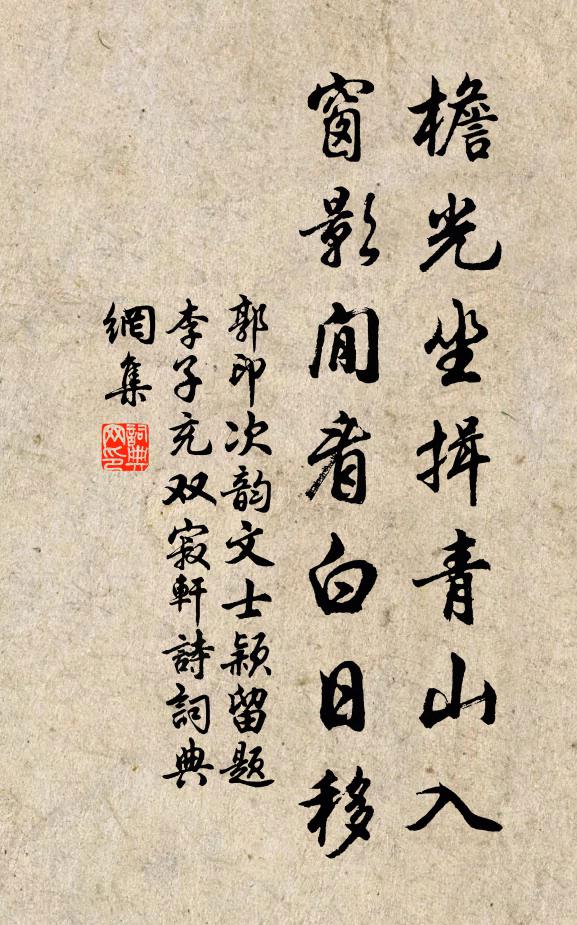 檐光坐揖青山入
窗影閒看白日移
郭印次韵文士颖留题
李子充双寂軒詩詞典
網集
詞典
网印